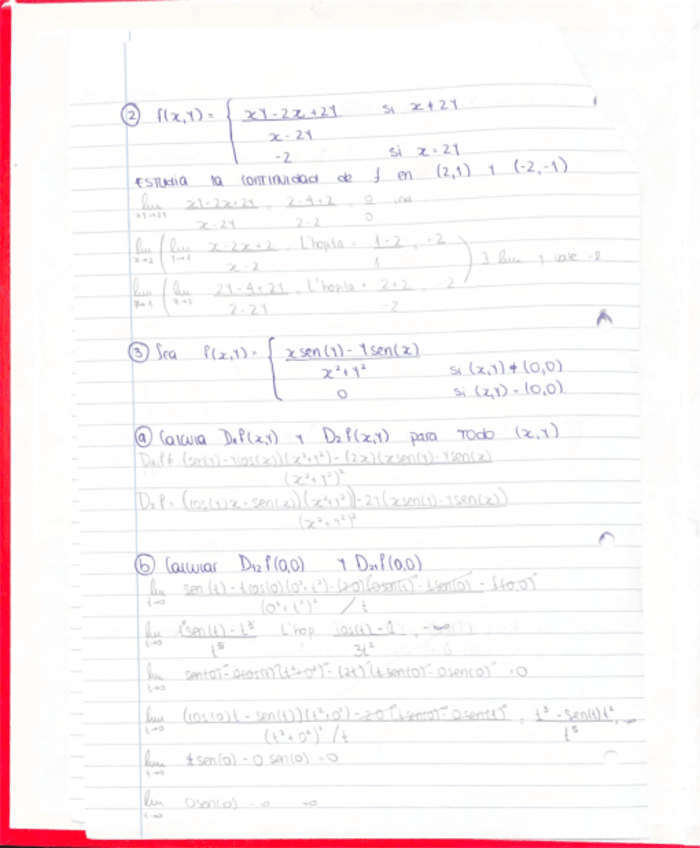 ② f(x,y) = { xy-2x+2y si x≠2y
x-2y
-2 si x=2y
Estudia la continuidad de f en (2,1) y (-2,-1)
lim xy-2x+2y = 2-4+2 = 0 ind
x-2y 2-2 0
lim ( lim x-2x+2 L'hopita = 1-2 = -2
x→2 x-2 1
∃ lim y vale -2
lim ( lim 2y-4+2y L'hopita = 2+2 = -2
2-2y -2
③ Sea f(x,y) = { x sen(y) - y sen(x)
x²+y² si (x,y) ≠ (0,0)
0 si (x,y) = (0,0)
ⓐ Calcula D₁f(x,y) y D₂f(x,y) para todo (x,y)
D₁f= (sen(y)-ycos(x))(x²+y²)-(2x)(xsen(y)-ysen(x)
(x²+y²)²
D₂f= (cos(y)x-sen(x))(x²+y²)-2y(xsen(y)-ysen(x))
(x²+y²)²
ⓑ Calcular D₁₂f(0,0) y D₂₁f(0,0)
lim sen(t)-tcos(0)(0²+t²)-(2·0)(0sen(t)-tsen(0)-f(0,0)
t→0 (0²+t²)² /t
lim t²sen(t)-t³ L'hop cos(t)-1
t→0 t⁵ 3t²
lim sen(0)-0cos(t)(t²+0²)-(2t)(tsen(0)-0sen(0) =0
t→0
lim (cos(0)t-sen(t))(t²+0²)-2·0(tsen(0)-0sen(t) = t³-sen(t)t²
t→0 (t²+0²)² /t t⁵
lim tsen(0)-0sen(0) =0
t→0
lim 0sen(0)
t→0